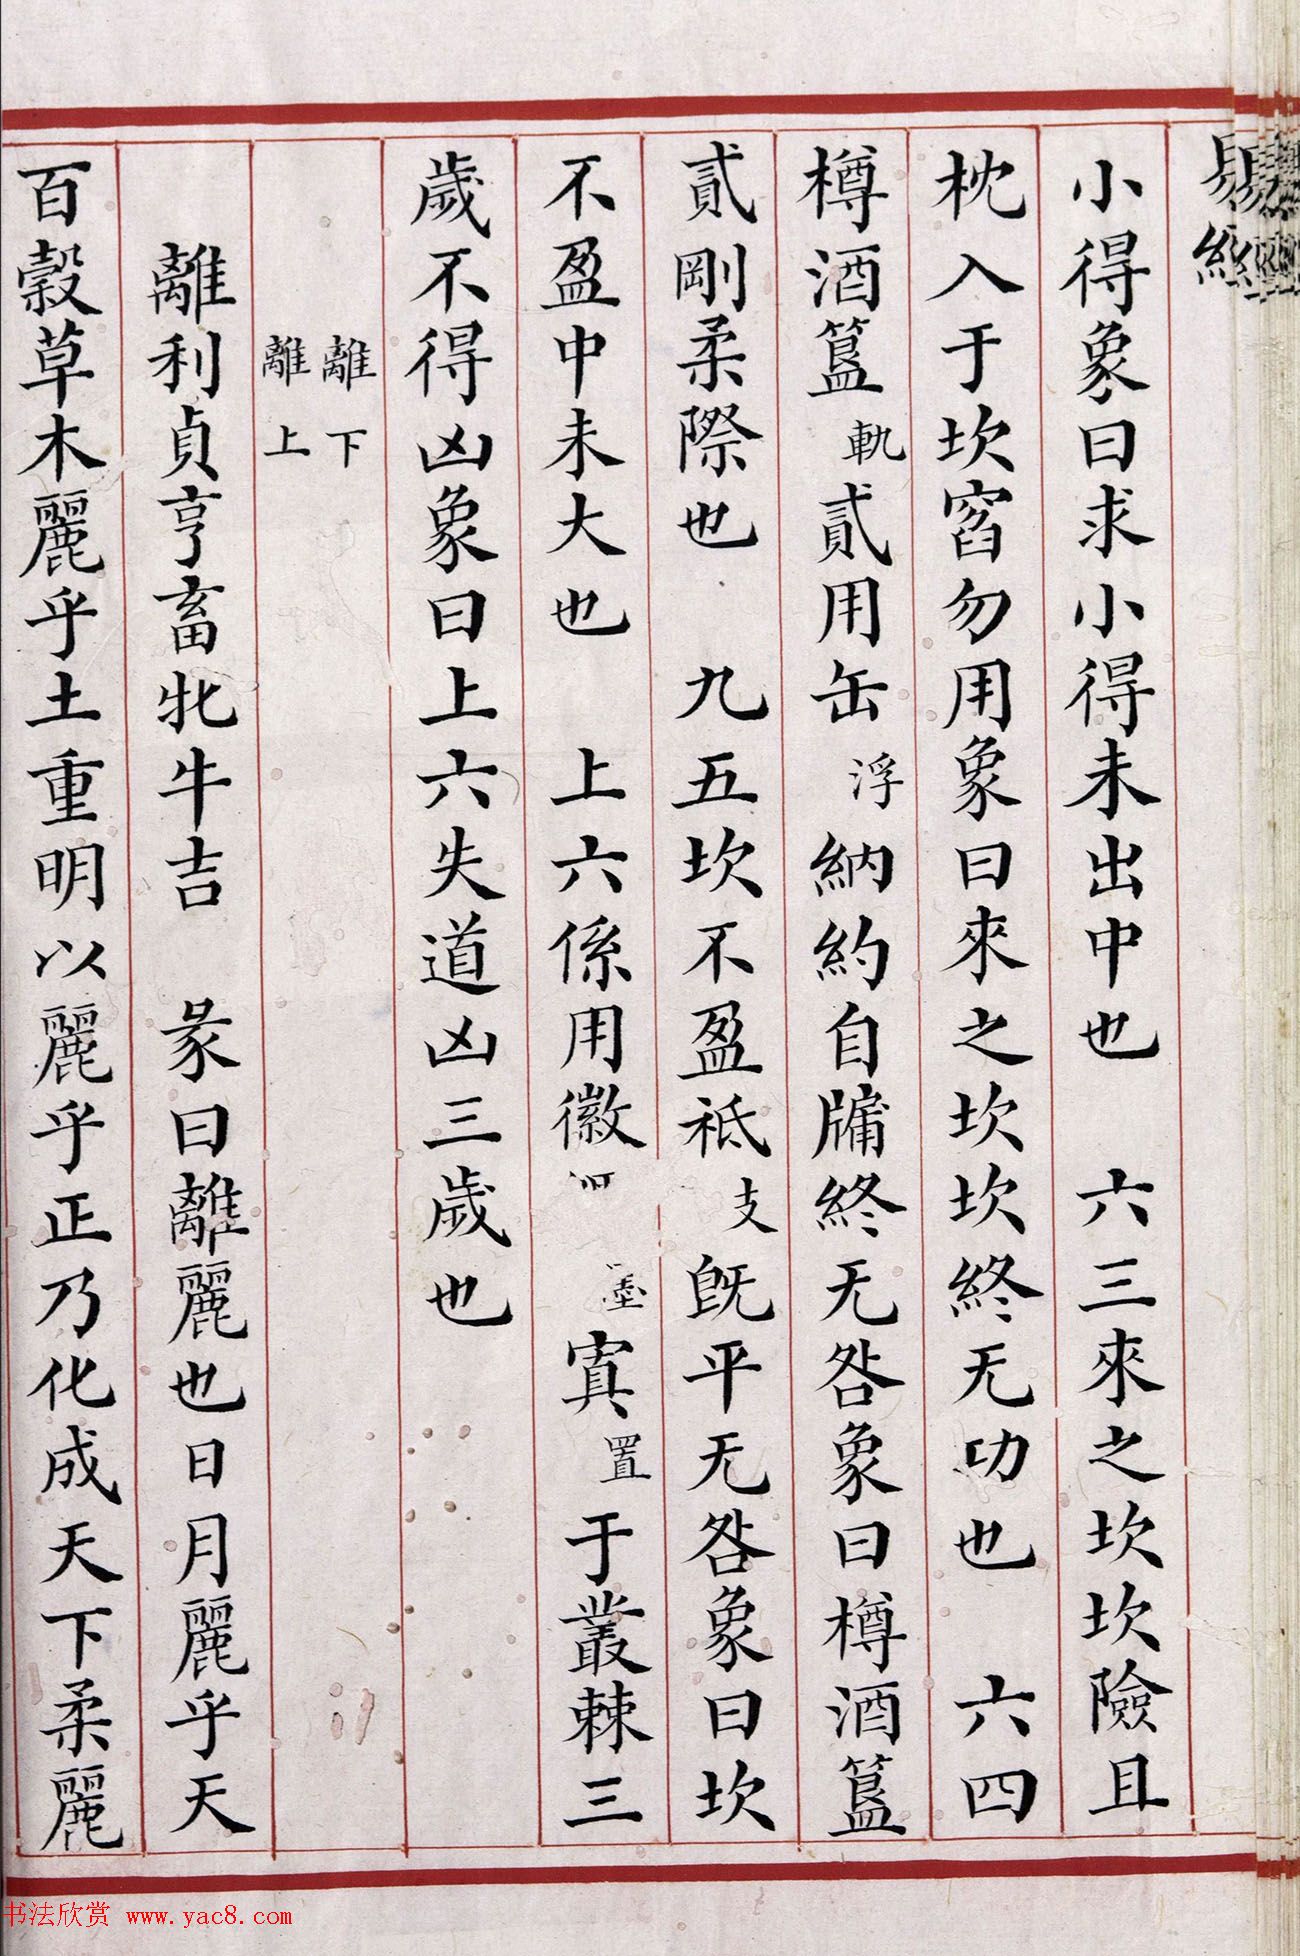 小得象曰求小得未出中也　六三來之坎坎險且
枕入于坎窞勿用象曰來之坎坎終无功也　六四
樽酒簋軌貳用缶浮納約自牖終无咎象曰樽酒簋
貳剛柔際也　九五坎不盈祗支既平无咎象曰坎
不盈中未大也　上六係用徽寘置于叢棘三
歲不得凶象曰上六失道凶三歲也
離下
離上
離利貞亨畜牝牛吉　彖曰離麗也日月麗乎天
百穀草木麗乎土重明以麗乎正乃化成天下柔麗
书法欣赏 www.yac8.com